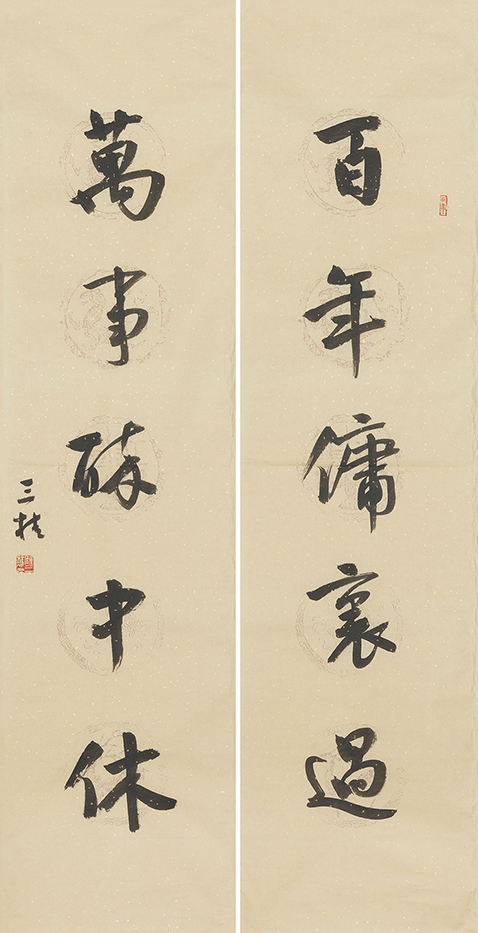 百年傭裏過
萬事酔中休
三